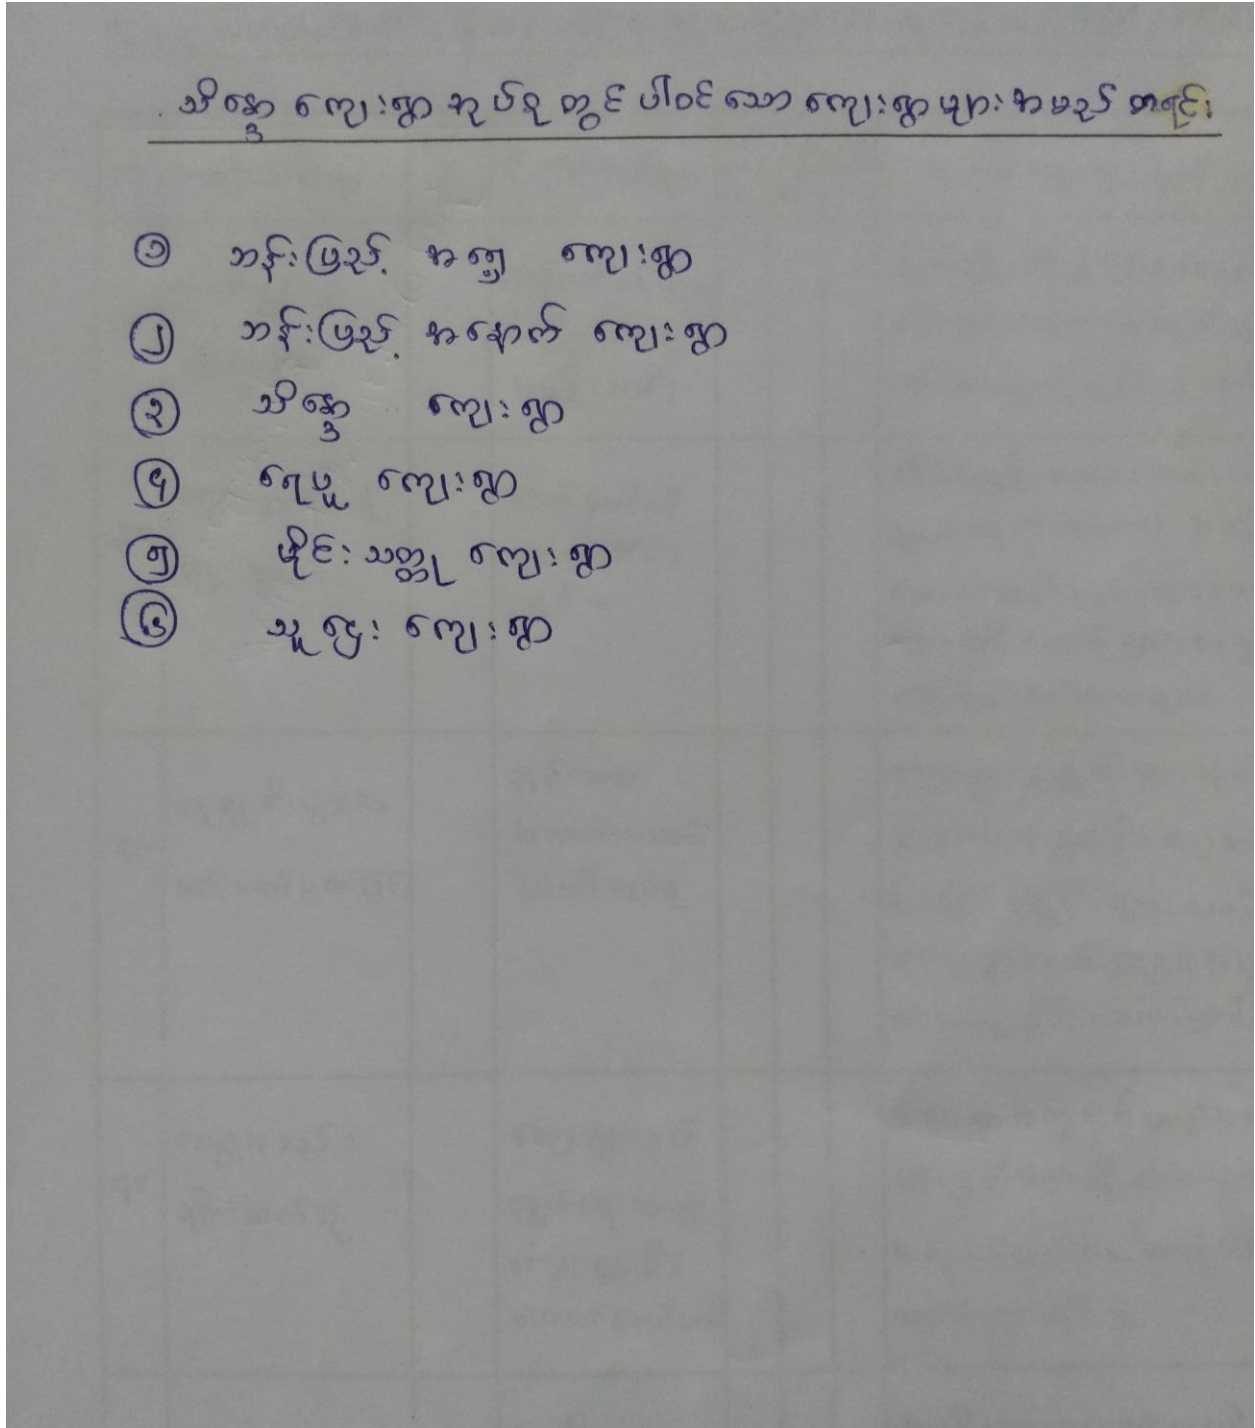 သိန္ဒော ကျေးရွာ အုပ်စု တွင် ပါဝင် သော ကျေးရွာ များ အမည် စာရင်း
၁ ဘန်းဖြည့် အရှေ့ ကျေးရွာ
၂ ဘန်းဖြည့် အနောက် ကျေးရွာ
၃ သိန္ဒော ကျေးရွာ
၄ ရေဖူ ကျေးရွာ
၅ မှိုင်းသတ္တု ကျေးရွာ
၆ သူဌေး ကျေးရွာ